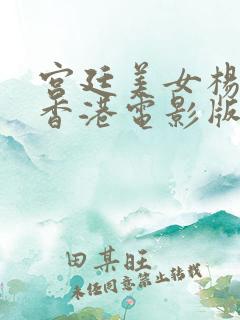 宫廷美女楊
香港電影版
田某旺
未经同意禁止转载